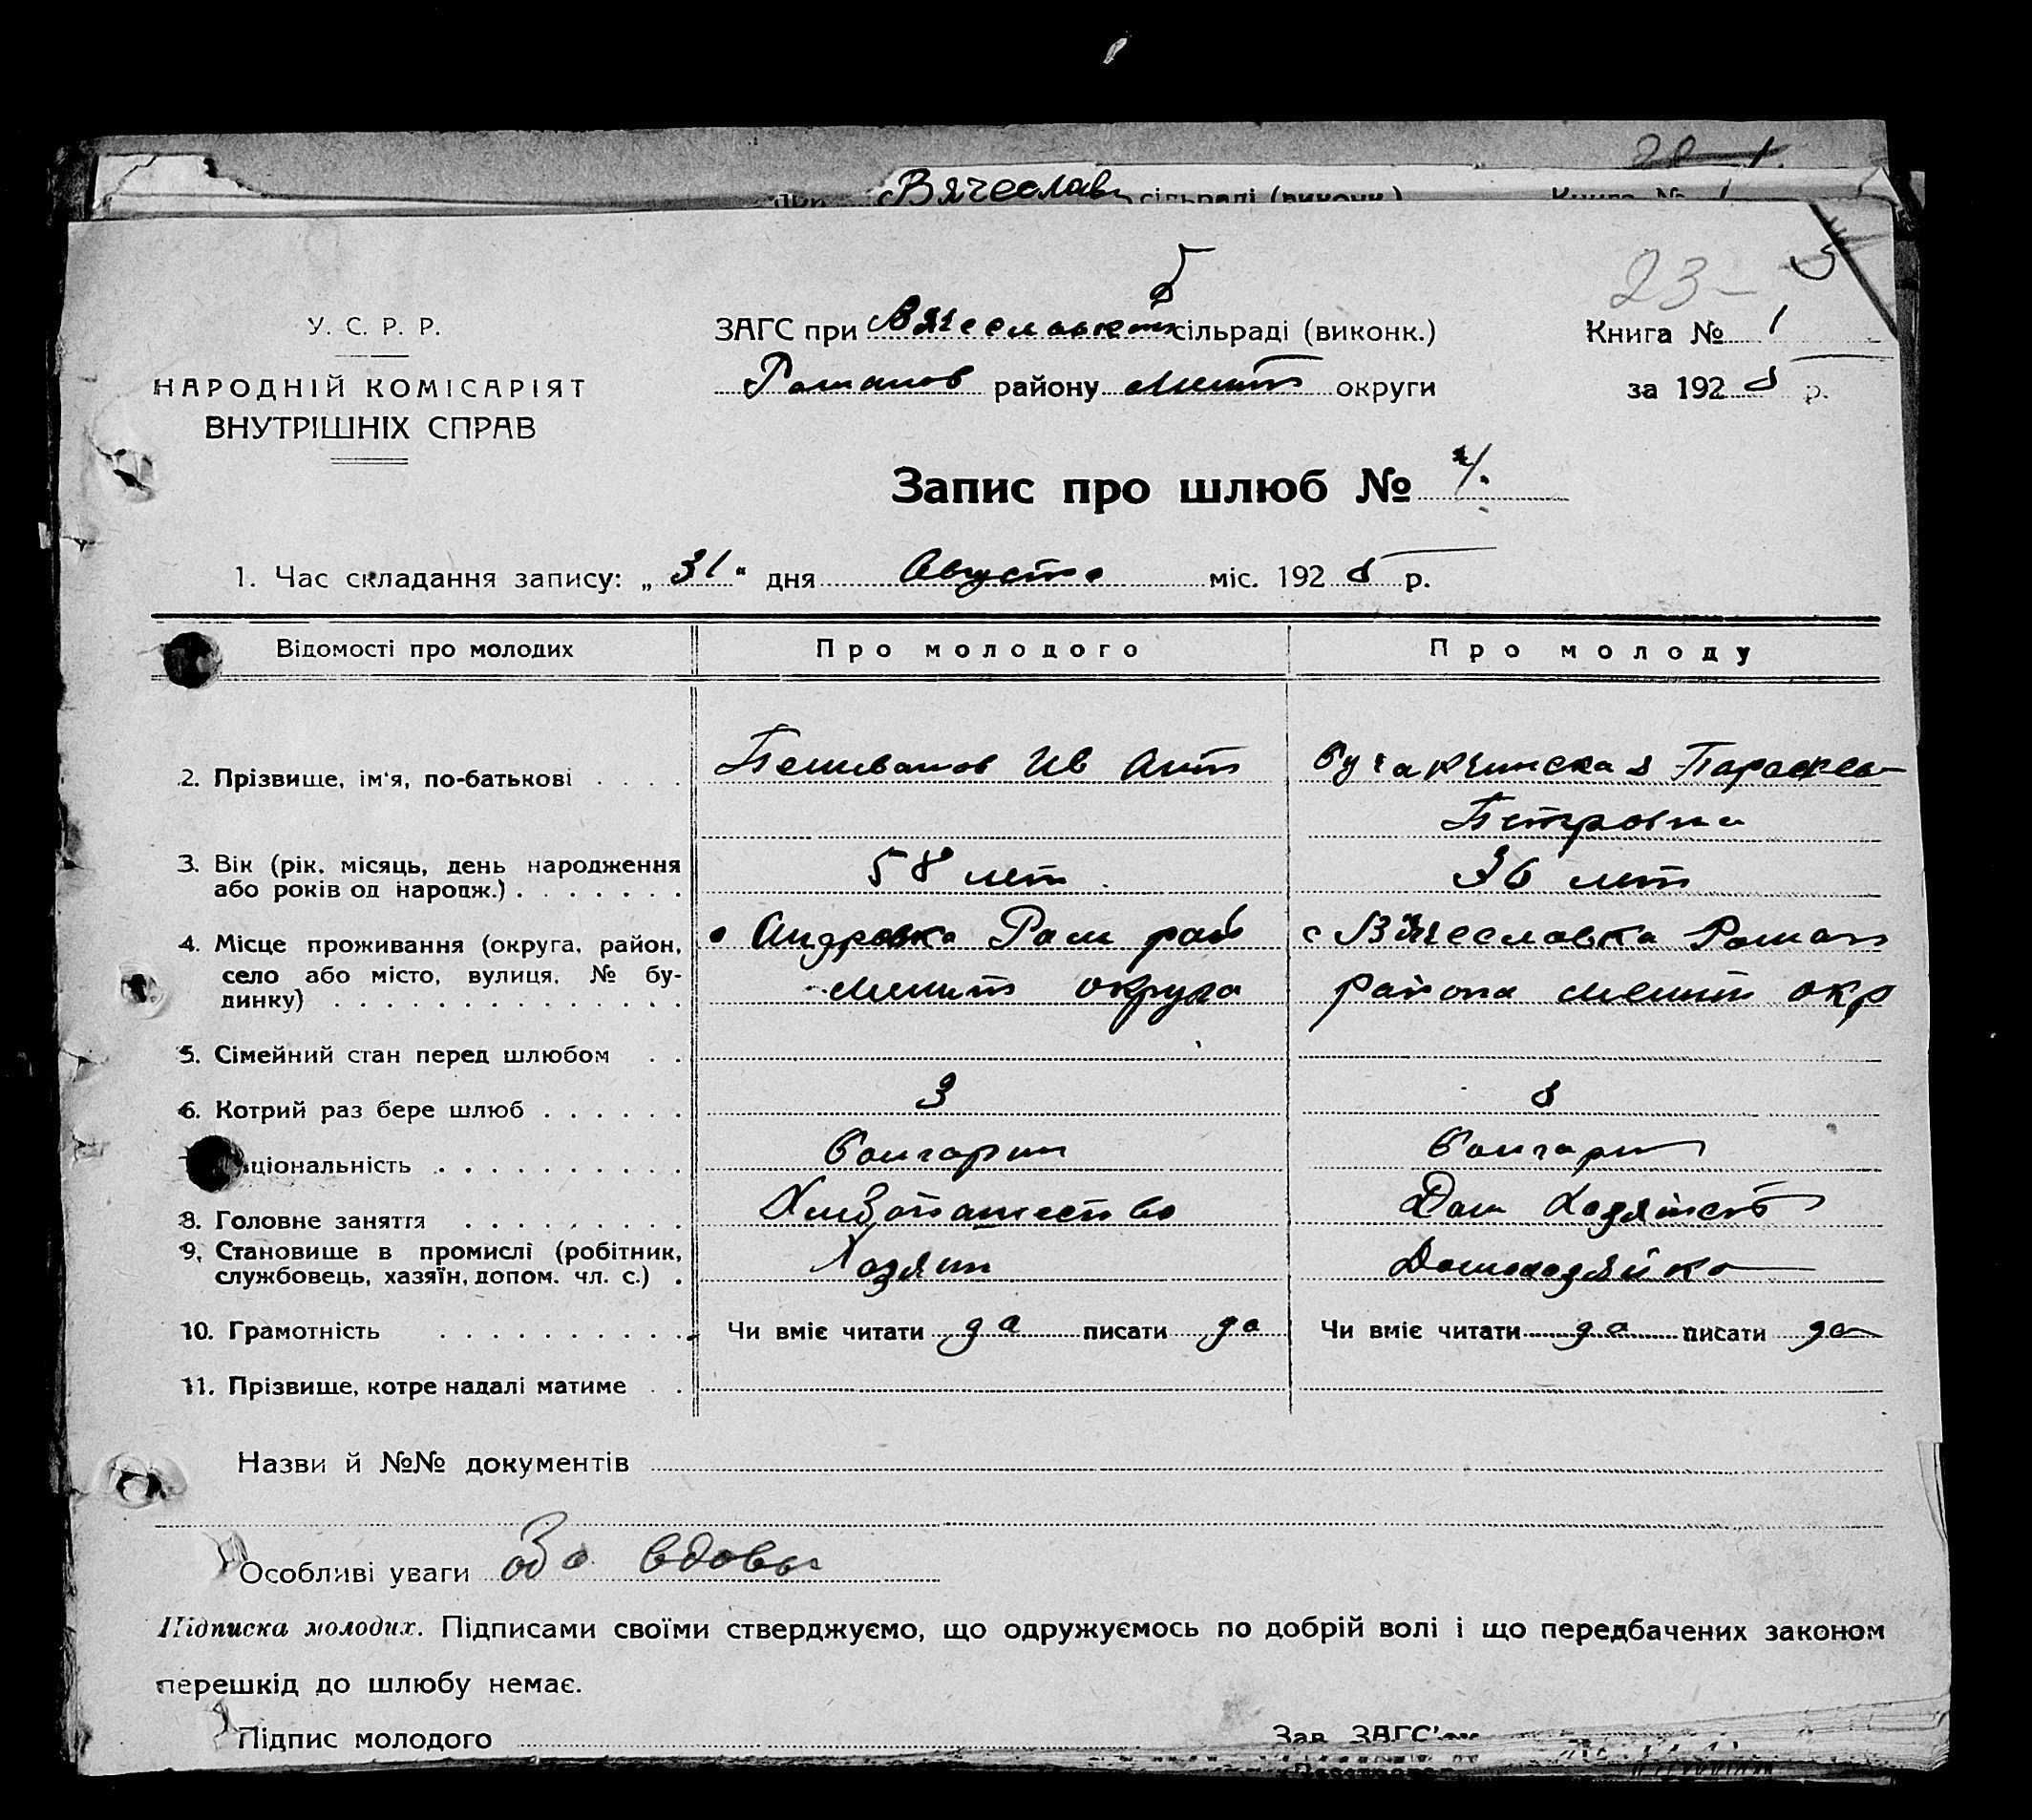 Вячеславк сільраді (виконк.) Книга № 1
23 –
У. С. Р. Р.
НАРОДНІЙ КОМІСАРІЯТ
ВНУТРІШНІХ СПРАВ
ЗАГС при Вячеславской сільраді (виконк.)
Романов району Мелит округи
Книга № 1
за 1928 р.
Запис про шлюб №
1. Час складання запису: „31“ дня Августа міс. 1928 р.
Відомості про молодих Про молодого Про молоду
2. Прізвище, ім'я, по-батькові . . . . Пешиванов Ив Ант Параскев
Петровна
3. Вік (рік, місяць, день народження
або років од народж.) . . . . . . . 58 лет 36 лет
4. Місце проживання (округа, район, с Андровка Ром рай с Вячеславка Роман
село або місто, вулиця, № бу- Мелит округа района Мелит окр
динку) . . . . . . . . . . . . . .
5. Сімейний стан перед шлюбом . .
6. Котрий раз бере шлюб . . . . . . 3
ціональність . . . . . . . . . . Болгарин Болгарк
8. Головне заняття . . . . . . . . Хлебопашество Дом Хозяйств
9. Становище в промислі (робітник,
службовець, хазяїн, допом. чл. с.) . Хозяин Домохозяйка
10. Грамотність . . . . . . . . . . Чи вміє читати да писати да Чи вміє читати да писати да
11. Прізвище, котре надалі матиме . .
Назви й №№ документів
Особливі уваги оба вдовы
Підписка молодих. Підписами своїми стверджуємо, що одружуємось по добрій волі і що передбачених законом
перешкід до шлюбу немає.
Підпис молодого Зав. ЗАГС'ом